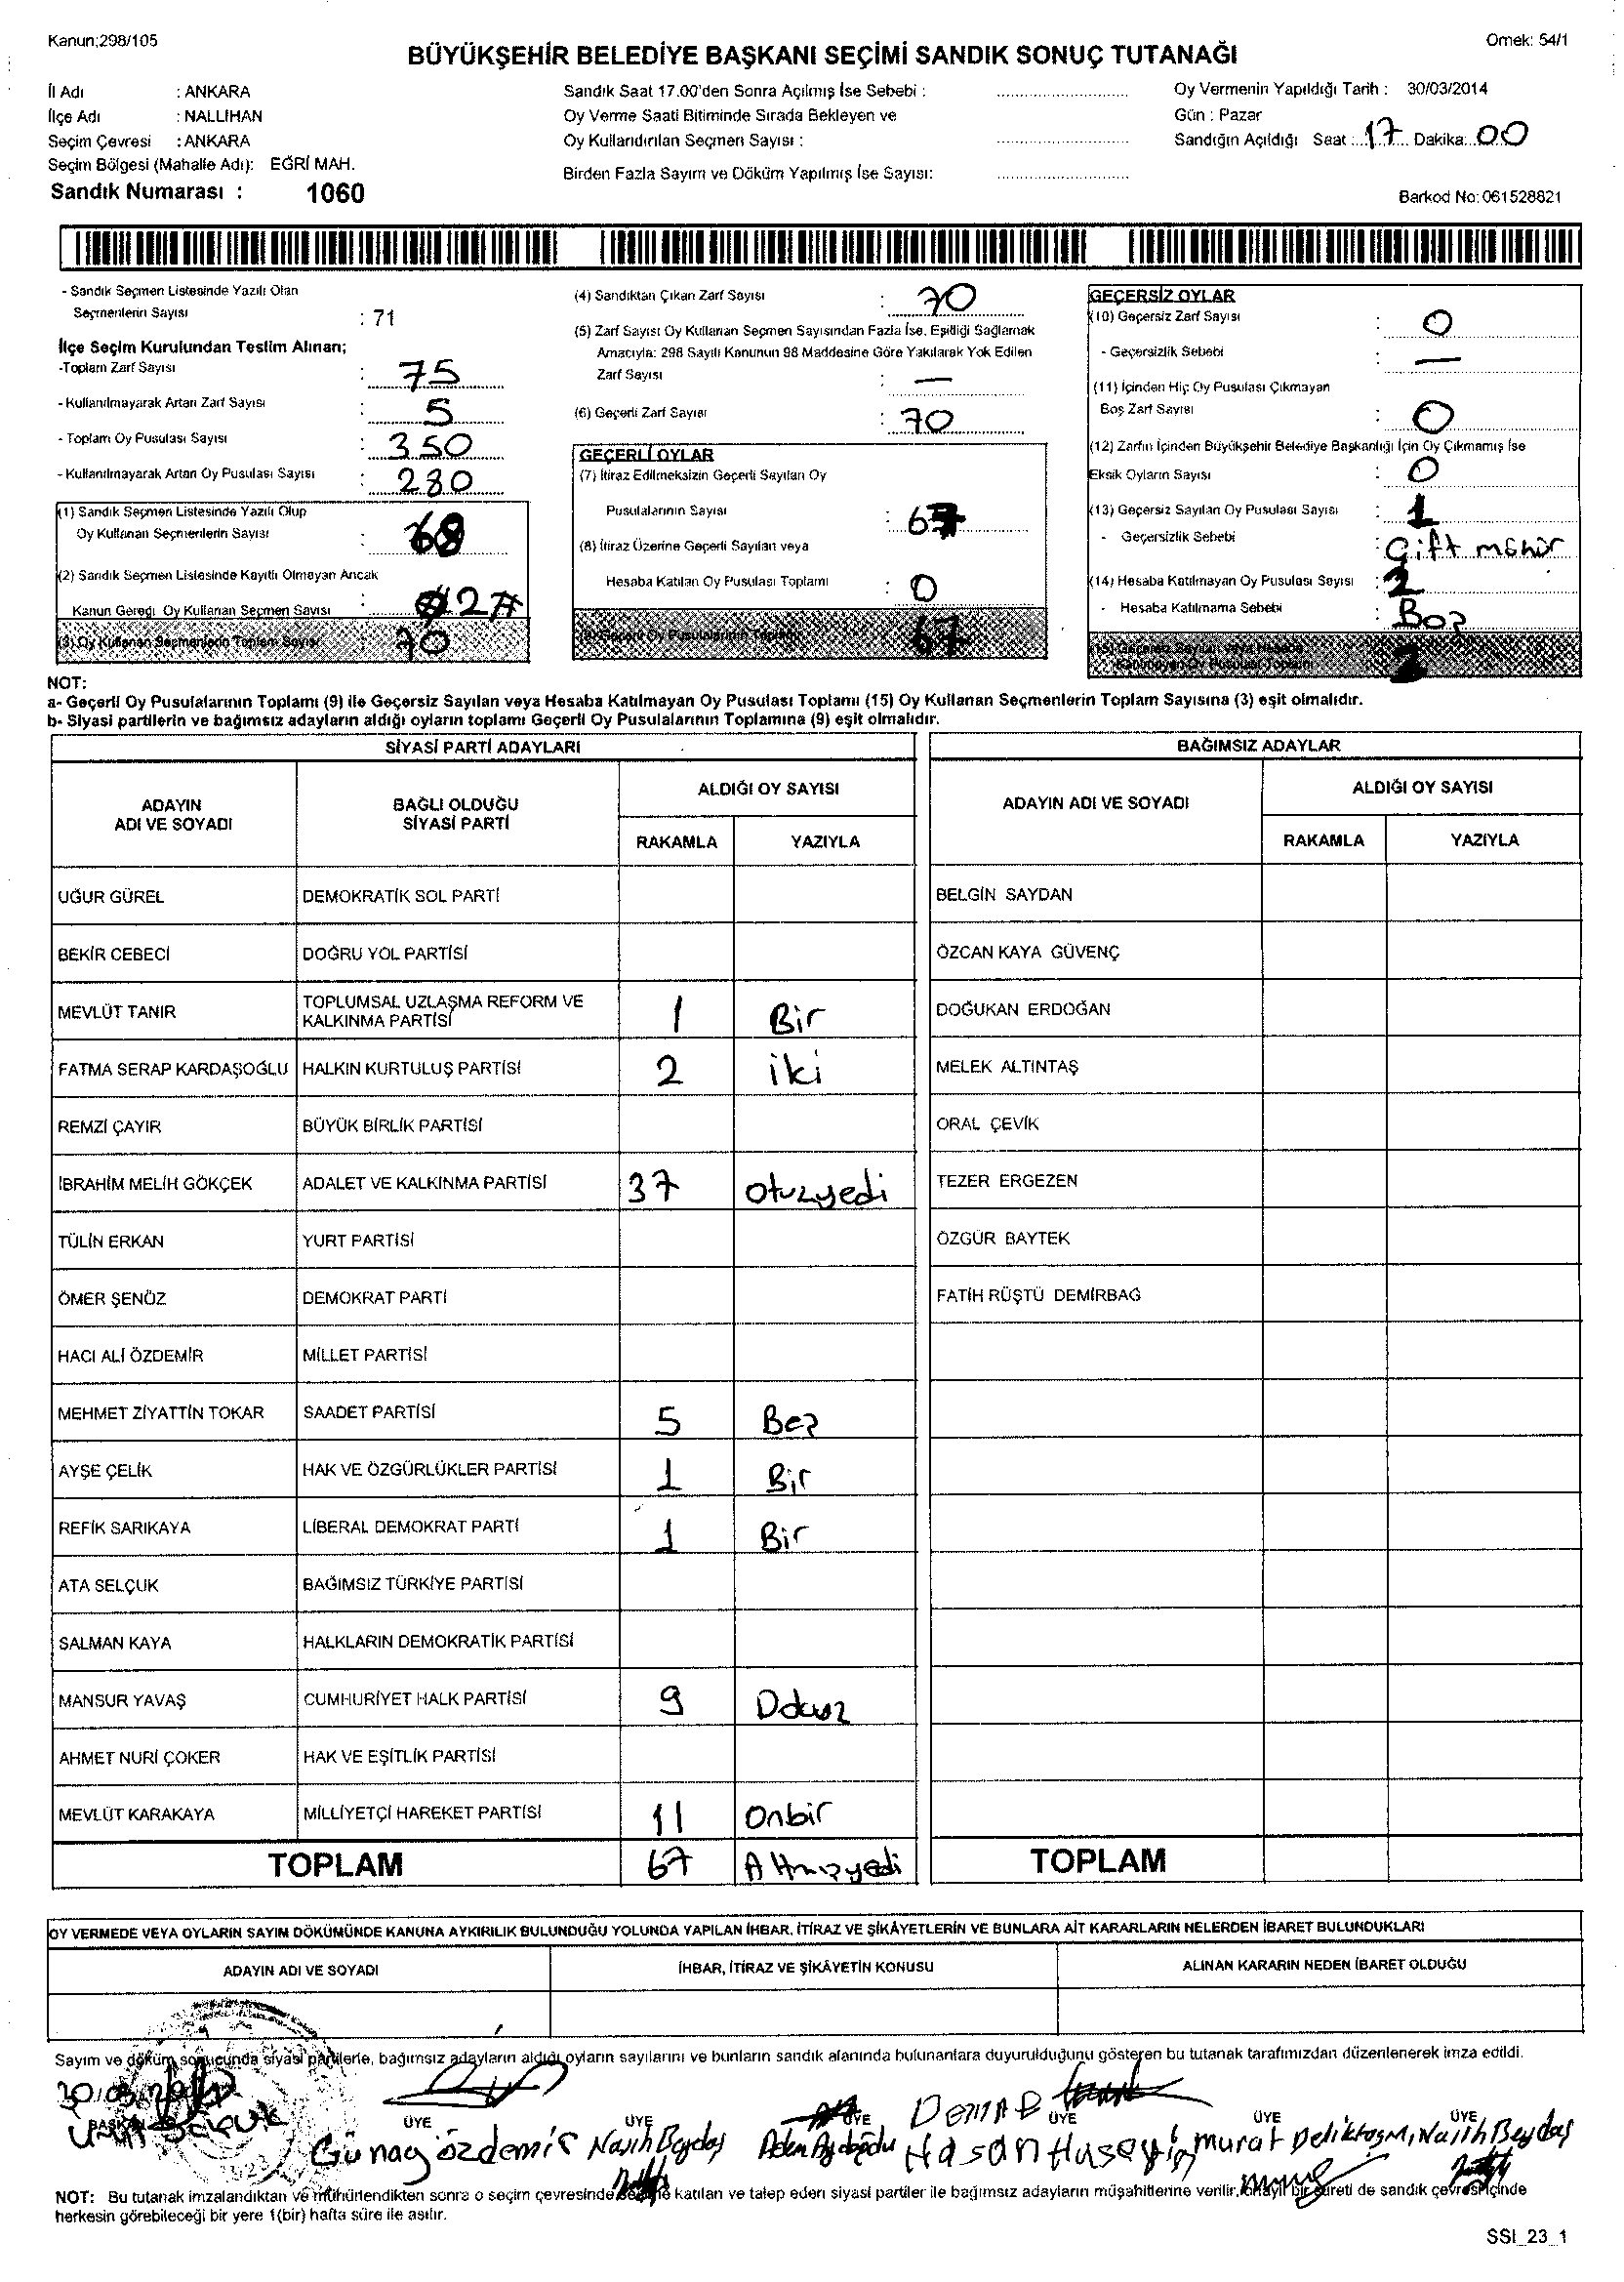 Kanun;298/105
Örnek: 54/1
BÜYÜKŞEHİR BELEDİYE BAŞKANI SEÇİMİ SANDIK SONUÇ TUTANAĞI
İl Adı : ANKARA
İlçe Adı : NALLIHAN
Seçim Çevresi : ANKARA
Seçim Bölgesi (Mahalle Adı): EĞRİ MAH.
Sandık Numarası : 1060
Sandık Saat 17.00'den Sonra Açılmış İse Sebebi :
Oy Verme Saati Bitiminde Sırada Bekleyen ve
Oy Kullandırılan Seçmen Sayısı :
Birden Fazla Sayım ve Döküm Yapılmış İse Sayısı:
Oy Vermenin Yapıldığı Tarih : 30/03/2014
Gün : Pazar
Sandığın Açıldığı Saat : 17 Dakika: 00
Barkod No: 061528821
- Sandık Seçmen Listesinde Yazılı Olan
Seçmenlerin Sayısı : 71
İlçe Seçim Kurulundan Teslim Alınan;
-Toplam Zarf Sayısı : 75
- Kullanılmayarak Artan Zarf Sayısı : 5
- Toplam Oy Pusulası Sayısı : 350
- Kullanılmayarak Artan Oy Pusulası Sayısı : 280
(1) Sandık Seçmen Listesinde Yazılı Olup
Oy Kullanan Seçmenlerin Sayısı : 68
(2) Sandık Seçmen Listesinde Kayıtlı Olmayan Ancak
Kanun Gereği Oy Kullanan Seçmen Sayısı : 2
(3) Oy Kullanan Seçmenlerin Toplam Sayısı 70
(4) Sandıktan Çıkan Zarf Sayısı : 70
(5) Zarf Sayısı Oy Kullanan Seçmen Sayısından Fazla İse, Eşitliği Sağlamak
Amacıyla; 298 Sayılı Kanunun 98 Maddesine Göre Yakılarak Yok Edilen
Zarf Sayısı : —
(6) Geçerli Zarf Sayısı : 70
GEÇERLİ OYLAR
(7) İtiraz Edilmeksizin Geçerli Sayılan Oy
Pusulalarının Sayısı : 67
(8) İtiraz Üzerine Geçerli Sayılan veya
Hesaba Katılan Oy Pusulası Toplamı : 0
(9) Geçerli Oy Pusulalarının Toplamı 67
GEÇERSİZ OYLAR
(10) Geçersiz Zarf Sayısı : 0
- Geçersizlik Sebebi : —
(11) İçinden Hiç Oy Pusulası Çıkmayan
Boş Zarf Sayısı : 0
(12) Zarfın İçinden Büyükşehir Belediye Başkanlığı İçin Oy Çıkmamış İse
Eksik Oyların Sayısı : 0
(13) Geçersiz Sayılan Oy Pusulası Sayısı : 1
- Geçersizlik Sebebi : Çift mühür
(14) Hesaba Katılmayan Oy Pusulası Sayısı : 2
- Hesaba Katılmama Sebebi : Boş
(15) Geçersiz Sayılan veya Hesaba
Katılmayan Oy Pusulası Toplamı 3
NOT:
a- Geçerli Oy Pusulalarının Toplamı (9) ile Geçersiz Sayılan veya Hesaba Katılmayan Oy Pusulası Toplamı (15) Oy Kullanan Seçmenlerin Toplam Sayısına (3) eşit olmalıdır.
b- Siyasi partilerin ve bağımsız adayların aldığı oyların toplamı Geçerli Oy Pusulalarının Toplamına (9) eşit olmalıdır.
SİYASİ PARTİ ADAYLARI
ADAYIN ADI VE SOYADI
BAĞLI OLDUĞU SİYASİ PARTİ
ALDIĞI OY SAYISI
RAKAMLA YAZIYLA
UĞUR GÜREL DEMOKRATİK SOL PARTİ
BEKİR CEBECİ DOĞRU YOL PARTİSİ
MEVLÜT TANIR TOPLUMSAL UZLAŞMA REFORM VE KALKINMA PARTİSİ 1 Bir
FATMA SERAP KARDAŞOĞLU HALKIN KURTULUŞ PARTİSİ 2 iki
REMZİ ÇAYIR BÜYÜK BİRLİK PARTİSİ
İBRAHİM MELİH GÖKÇEK ADALET VE KALKINMA PARTİSİ 37 otuzyedi
TÜLİN ERKAN YURT PARTİSİ
ÖMER ŞENÖZ DEMOKRAT PARTİ
HACI ALİ ÖZDEMİR MİLLET PARTİSİ
MEHMET ZİYATTİN TOKAR SAADET PARTİSİ 5 Beş
AYŞE ÇELİK HAK VE ÖZGÜRLÜKLER PARTİSİ 1 Bir
REFİK SARIKAYA LİBERAL DEMOKRAT PARTİ 1 Bir
ATA SELÇUK BAĞIMSIZ TÜRKİYE PARTİSİ
SALMAN KAYA HALKLARIN DEMOKRATİK PARTİSİ
MANSUR YAVAŞ CUMHURİYET HALK PARTİSİ 9 Dokuz
AHMET NURİ ÇOKER HAK VE EŞİTLİK PARTİSİ
MEVLÜT KARAKAYA MİLLİYETÇİ HAREKET PARTİSİ 11 onbir
TOPLAM 67 Altmışyedi
BAĞIMSIZ ADAYLAR
ADAYIN ADI VE SOYADI
ALDIĞI OY SAYISI
RAKAMLA YAZIYLA
BELGİN SAYDAN
ÖZCAN KAYA GÜVENÇ
DOĞUKAN ERDOĞAN
MELEK ALTINTAŞ
ORAL ÇEVİK
TEZER ERGEZEN
ÖZGÜR BAYTEK
FATİH RÜŞTÜ DEMİRBAĞ
TOPLAM
OY VERMEDE VEYA OYLARIN SAYIM DÖKÜMÜNDE KANUNA AYKIRILIK BULUNDUĞU YOLUNDA YAPILAN İHBAR, İTİRAZ VE ŞİKÂYETLERİN VE BUNLARA AİT KARARLARIN NELERDEN İBARET BULUNDUKLARI
ADAYIN ADI VE SOYADI İHBAR, İTİRAZ VE ŞİKÂYETİN KONUSU ALINAN KARARIN NEDEN İBARET OLDUĞU
Sayım ve döküm sonucunda siyasi partilerle, bağımsız adayların aldığı oyların sayılarını ve bunların sandık alanında bulunanlara duyurulduğunu gösteren bu tutanak tarafımızdan düzenlenerek imza edildi.
BAŞKAN ÜYE ÜYE ÜYE ÜYE ÜYE ÜYE
Günay özdemir Nasıh Beydaş Hasan Hüseyin murat Deliktaş
NOT: Bu tutanak imzalandıktan ve mühürlendikten sonra o seçim çevresinde seçime katılan ve talep eden siyasi partiler ile bağımsız adayların müşahitlerine verilir, onaylı bir sureti de sandık çevresi içinde
herkesin görebileceği bir yere 1(bir) hafta süre ile asılır.
SSI_23_1